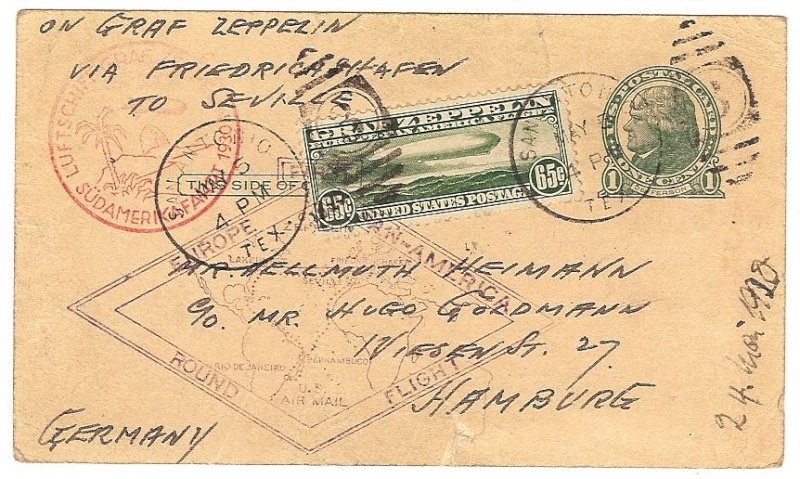 ON GRAF ZEPPELIN
VIA FRIEDRICHSHAFEN
TO SEVILLE
LUFTSCHIFF GRAF
SÜDAMERIKAFAHRT 1930
SAN ANTONIO
MAY 5
4 PM
TEX.
THIS SIDE OF
GRAF ZEPPELIN
EUROPE PAN AMERICA FLIGHT
65¢ 65¢
UNITED STATES POSTAGE
SAN ANTONIO
MAY
4 P
TEX
U.S. POSTAL CARD
ONE CENT
1 JEFFERSON 1
EUROPE PAN-AMERICA
ROUND FLIGHT
LAKEHURST
FRIEDRICHSHAFEN
SEVILLE
RIO DE JANEIRO
PERNAMBUCO
U.S.
AIR MAIL
MR HELLMUTH HEIMANN
c/o. MR. HUGO GOLDMANN
WIESENST. 27
HAMBURG
GERMANY
24. Mai